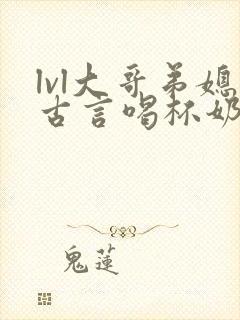 lvl大哥弟媳
古言喝杯奶
鬼蓮